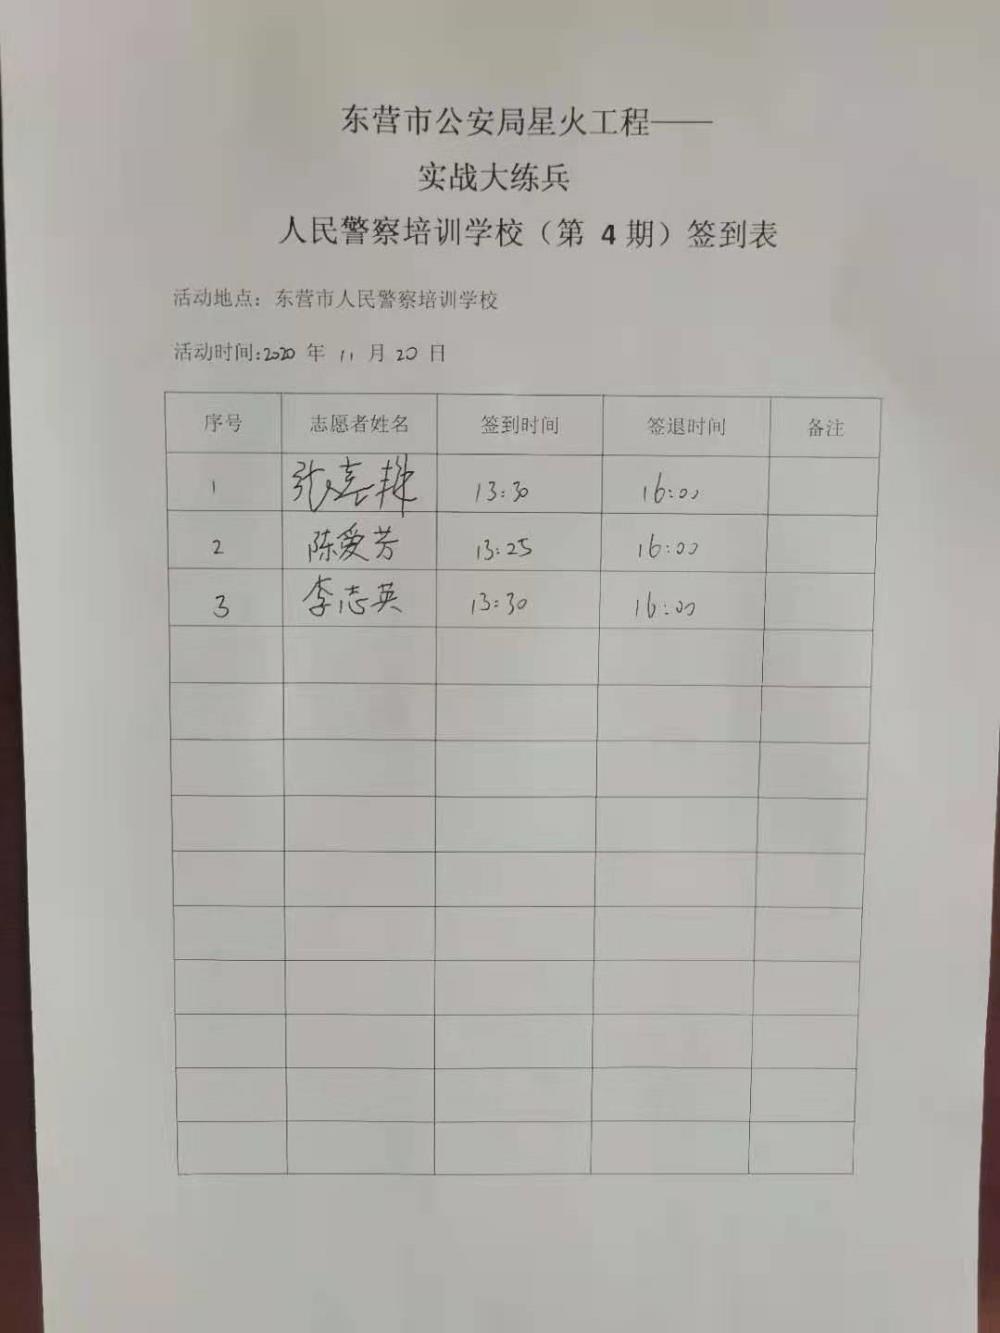 东营市公安局星火工程——
实战大练兵
人民警察培训学校（第 4 期）签到表
活动地点：东营市人民警察培训学校
活动时间:2020 年 11 月 20 日
序号 志愿者姓名 签到时间 签退时间 备注
1 张 13:30 16:00
2 陈爱芳 13:25 16:00
3 李志英 13:30 16:00